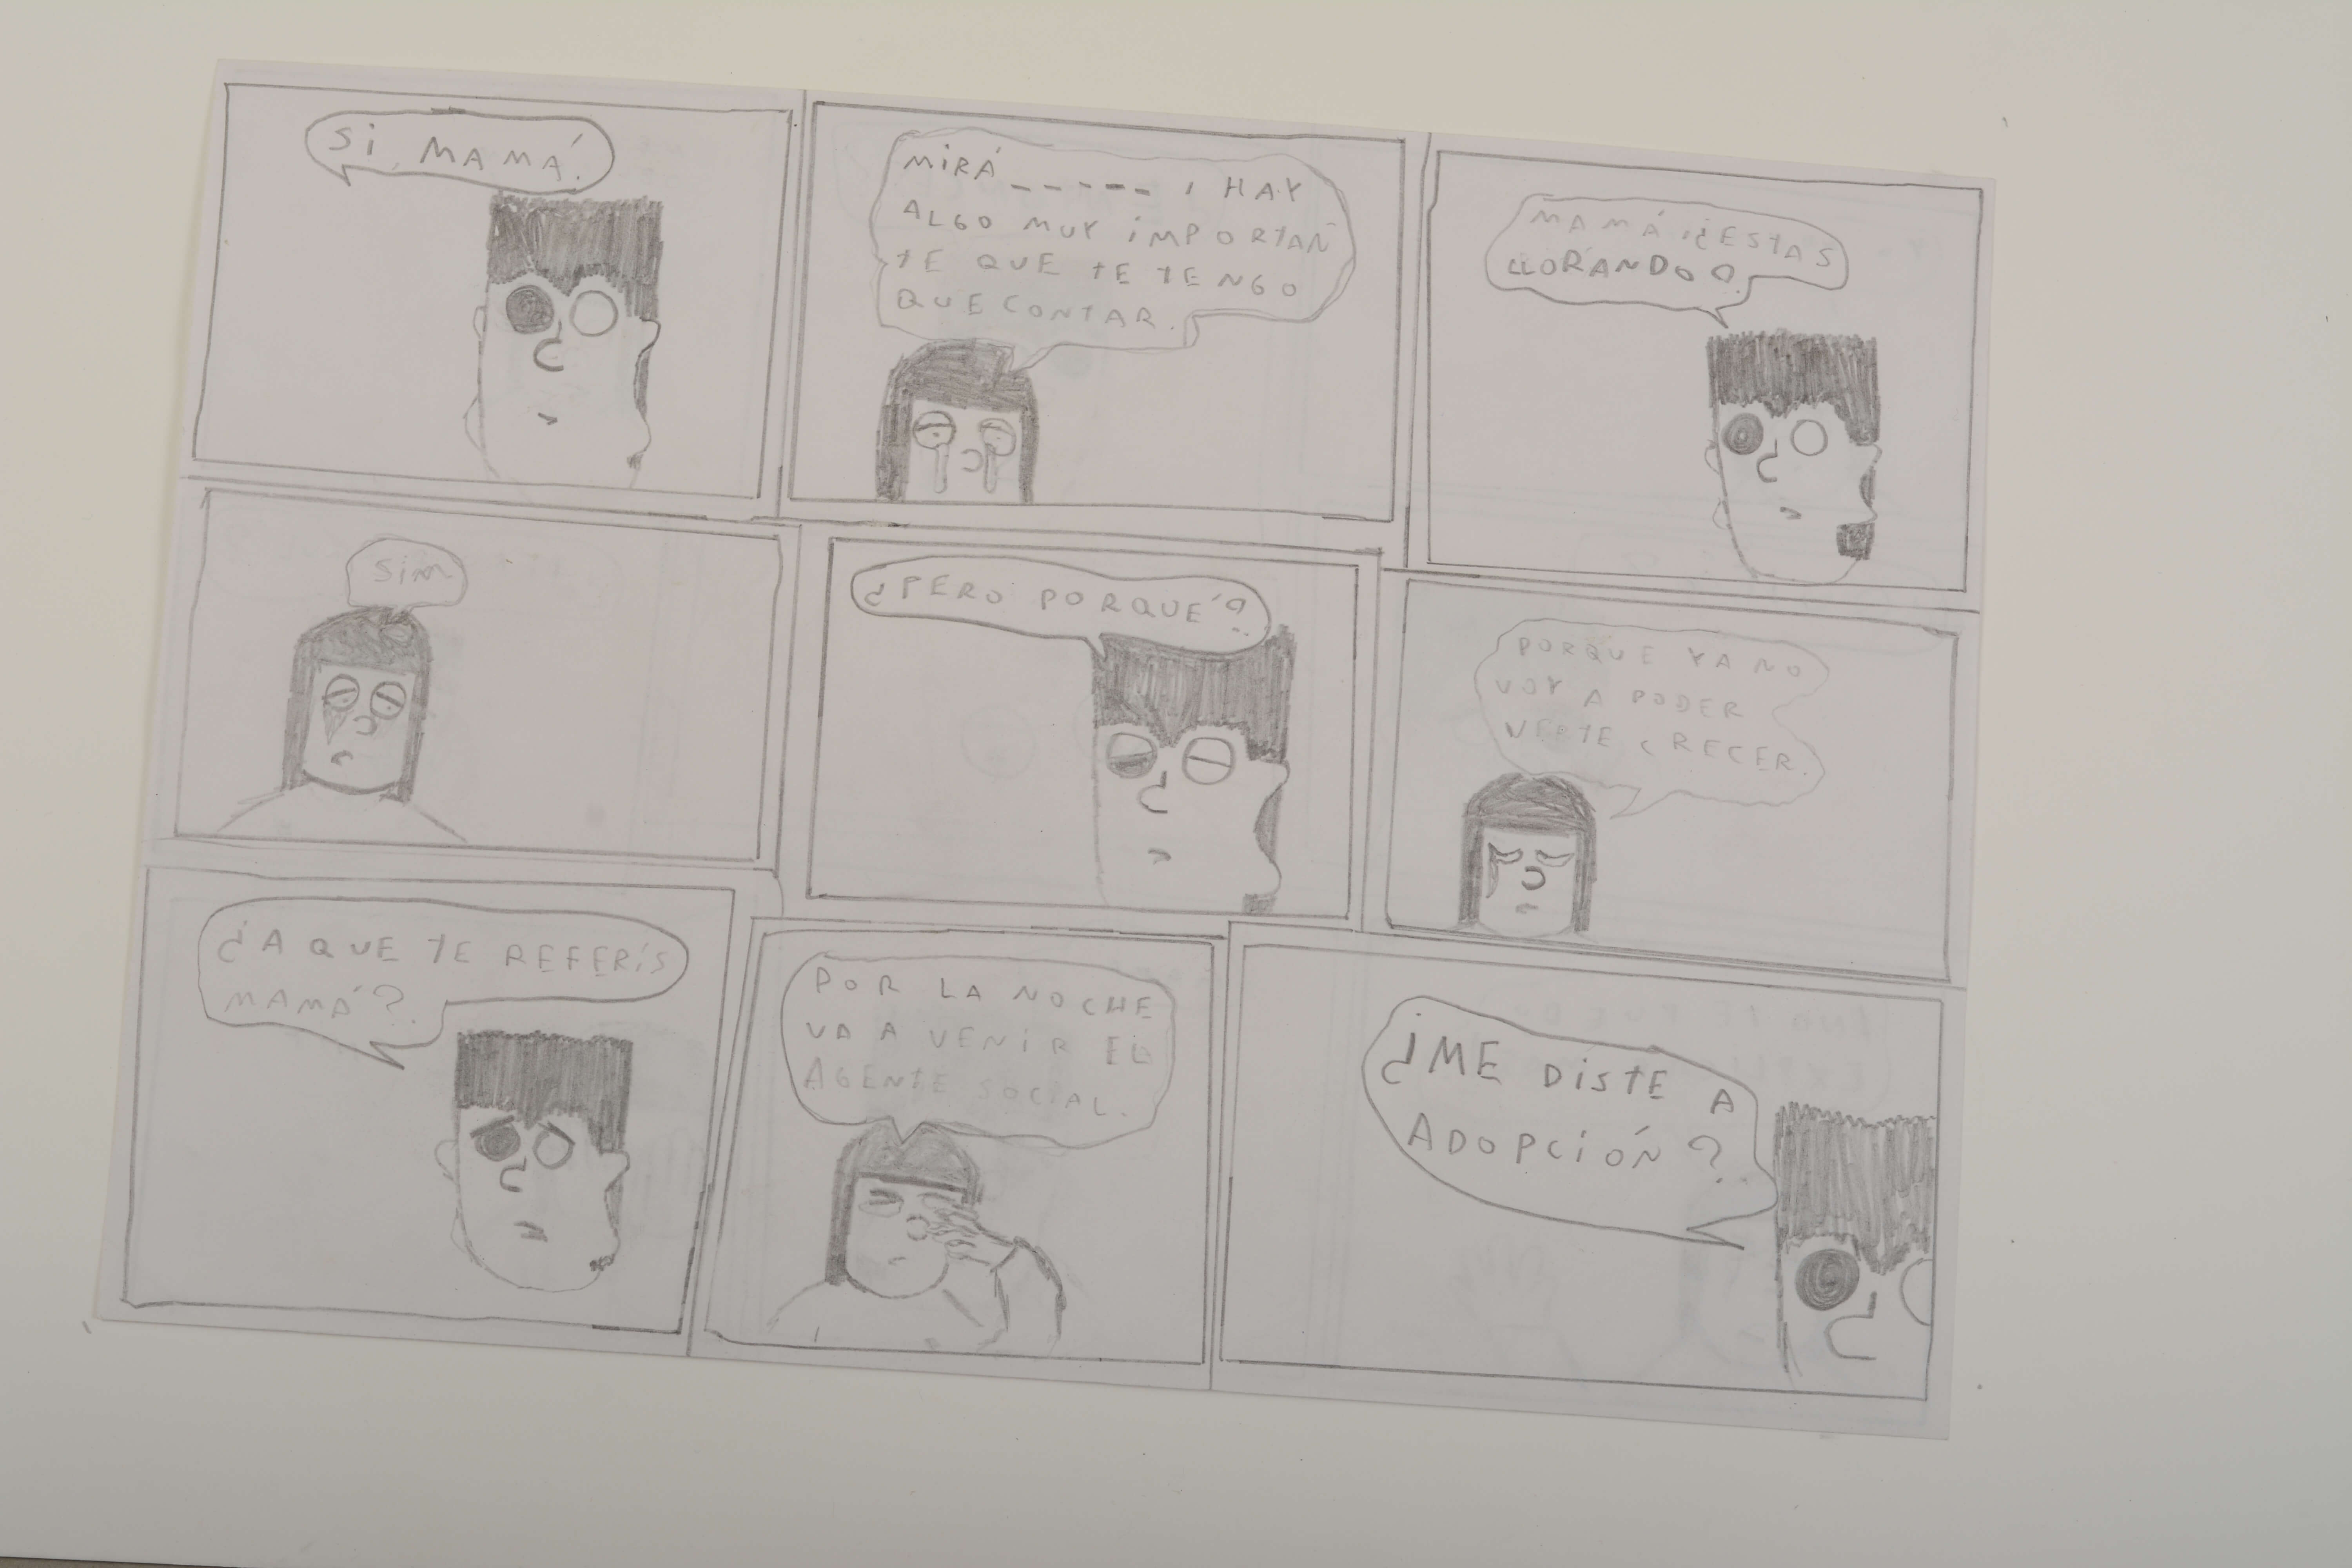 SI MAMÁ.
MIRÁ _ _ _ _ _ , HAY
ALGO MUY IMPORTAN
TE QUE TE TENGO
QUE CONTAR.
MAMÁ ¿ESTAS
LLORANDO?
¿PERO PORQUÉ?
PORQUE YA NO
VOY A PODER
VERTE CRECER.
¿A QUE TE REFERÍS
MAMÁ?
POR LA NOCHE
VA A VENIR EL
AGENTE SOCIAL.
¿ME DISTE A
ADOPCIÓN?